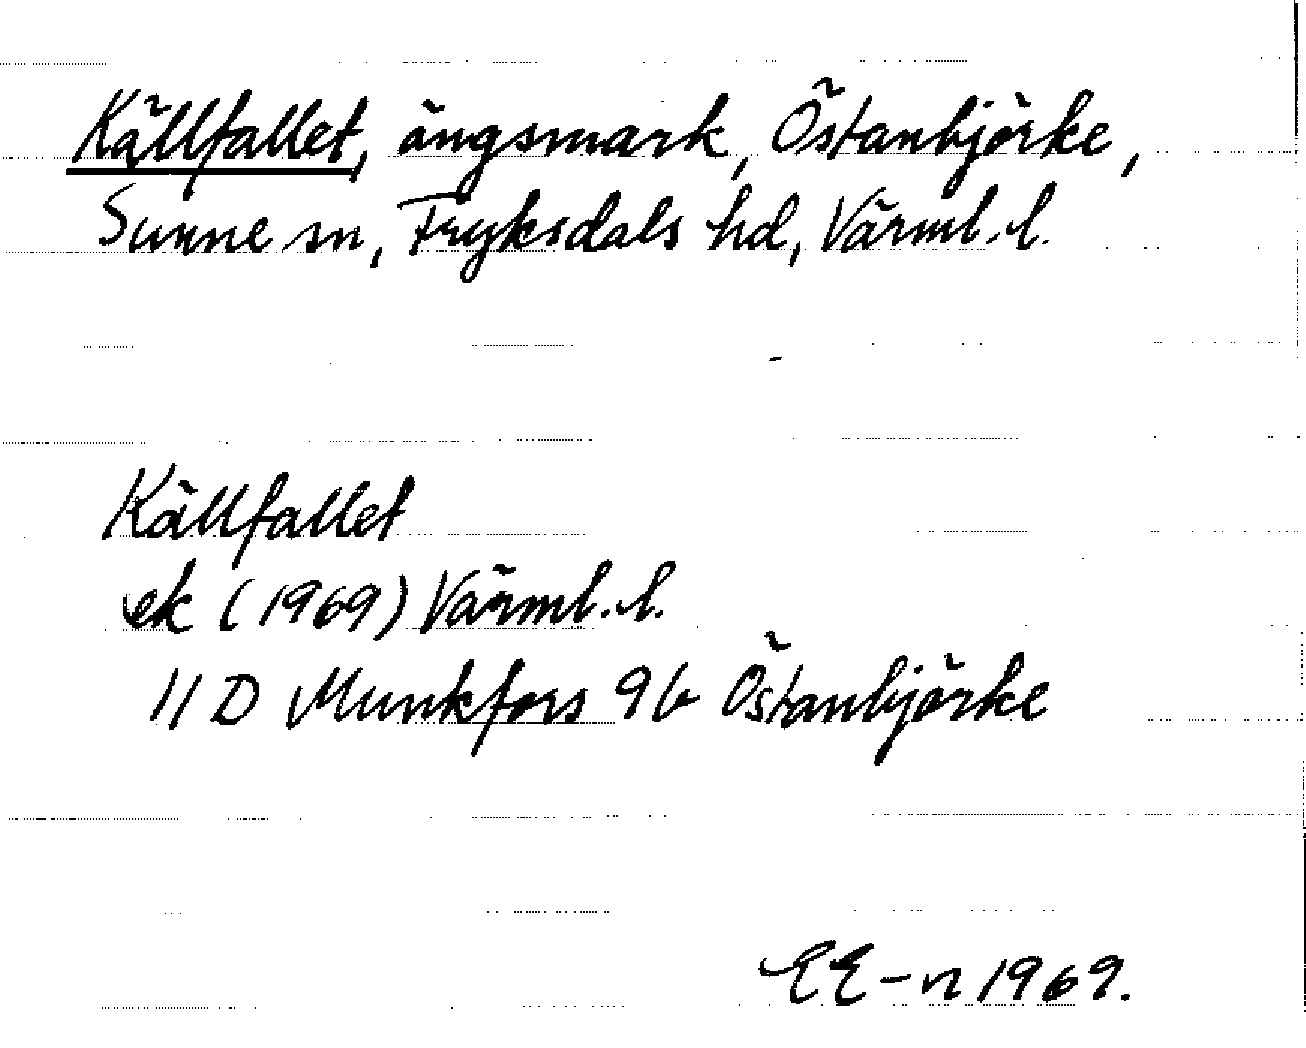 Källfallet, ängsmark, Östanbjörke,
Sunne sn, Fryksdals hd, Värml. l.
Källfallet
ek (1969) Värml. l.
11 D Munkfors 9b Östanbjörke
EE-n 1969.